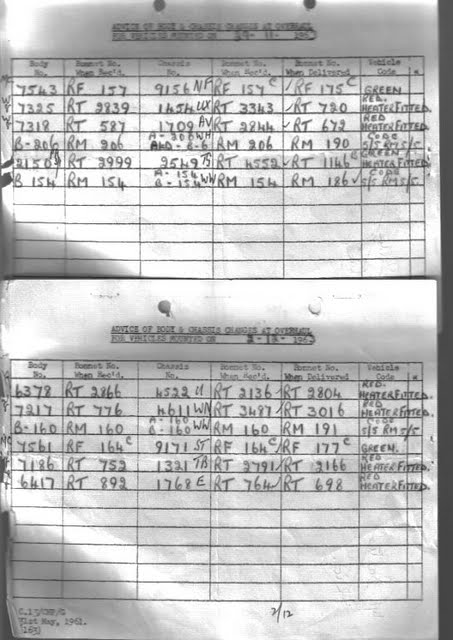 ADVICE OF BODY & CHASSIS CHANGES AT OVERHAUL
FOR VEHICLES MOUNTED ON 29-11-1963
Body No. Bonnet No. When Rec'd. Chassis No. Bonnet No. When Rec'd. Bonnet No. When Delivered Vehicle Code *
7543 RF 157 9156 NF RF 157 C RF 175 C GREEN
7325 RT 2839 1454 UX RT 3343 RT 720 RED. HEATER FITTED.
7318 RT 587 1709 AV RT 2844 RT 672 RED HEATER FITTED.
B-206 RM 206 RM 206 RM 190 CODE 5/5 RM 5/5
RT 2999 2549 RT 4552 RT 1146 GREEN HEATER FITTED.
B 154 RM 154 A-154 B-154 WW RM 154 RM 186 CODE 5/5 RM 5/5
ADVICE OF BODY & CHASSIS CHANGES AT OVERHAUL
FOR VEHICLES MOUNTED ON 2-12-1963
Body No. Bonnet No. When Rec'd. Chassis No. Bonnet No. When Rec'd. Bonnet No. When Delivered Vehicle Code *
6378 RT 2866 4522 RT 2136 RT 2804 RED. HEATER FITTED.
7217 RT 776 4611 WN RT 3487 RT 3016 RED HEATER FITTED.
B-160 RM 160 A-160 B-160 WW RM 160 RM 191 CODE 5/5 RM 5/5
7561 RF 164 C 9171 ST RF 164 C RF 177 C GREEN.
7186 RT 752 1321 TB RT 2791 RT 2166 RED HEATER FITTED.
6417 RT 892 1768 E RT 764 RT 698 RED HEATER FITTED.
C.13/CHP/G
31st May, 1961.
(163)
2/12